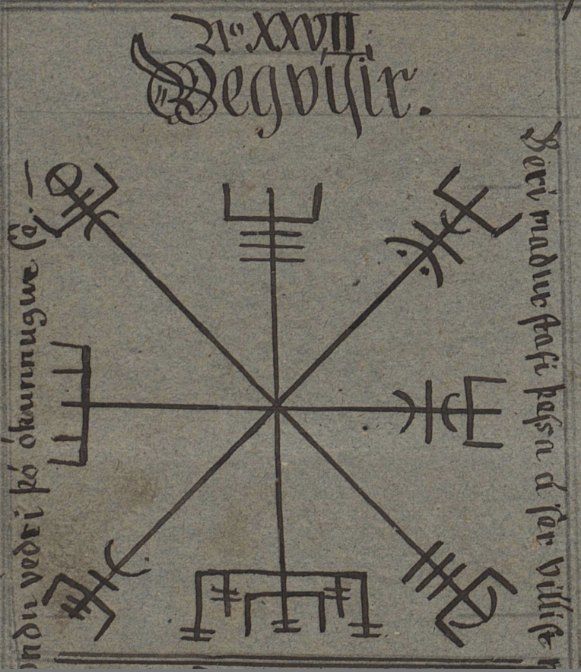 No XXVII.
Vegvísir.
Beri maður stafi þessa á sér villist
vondu veðri þó ókunnugur sé. —